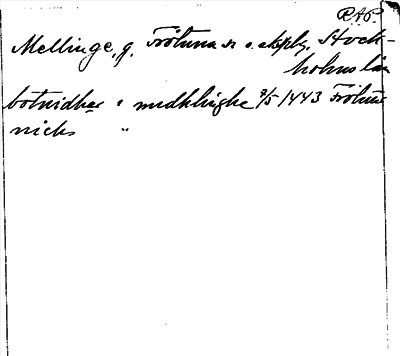 RAP.
Mellinge, g. Frötuna sn o. skplg, Stock-
holms län
botvidher i medhlinghe 3/5 1443 Frötuna
nichs "